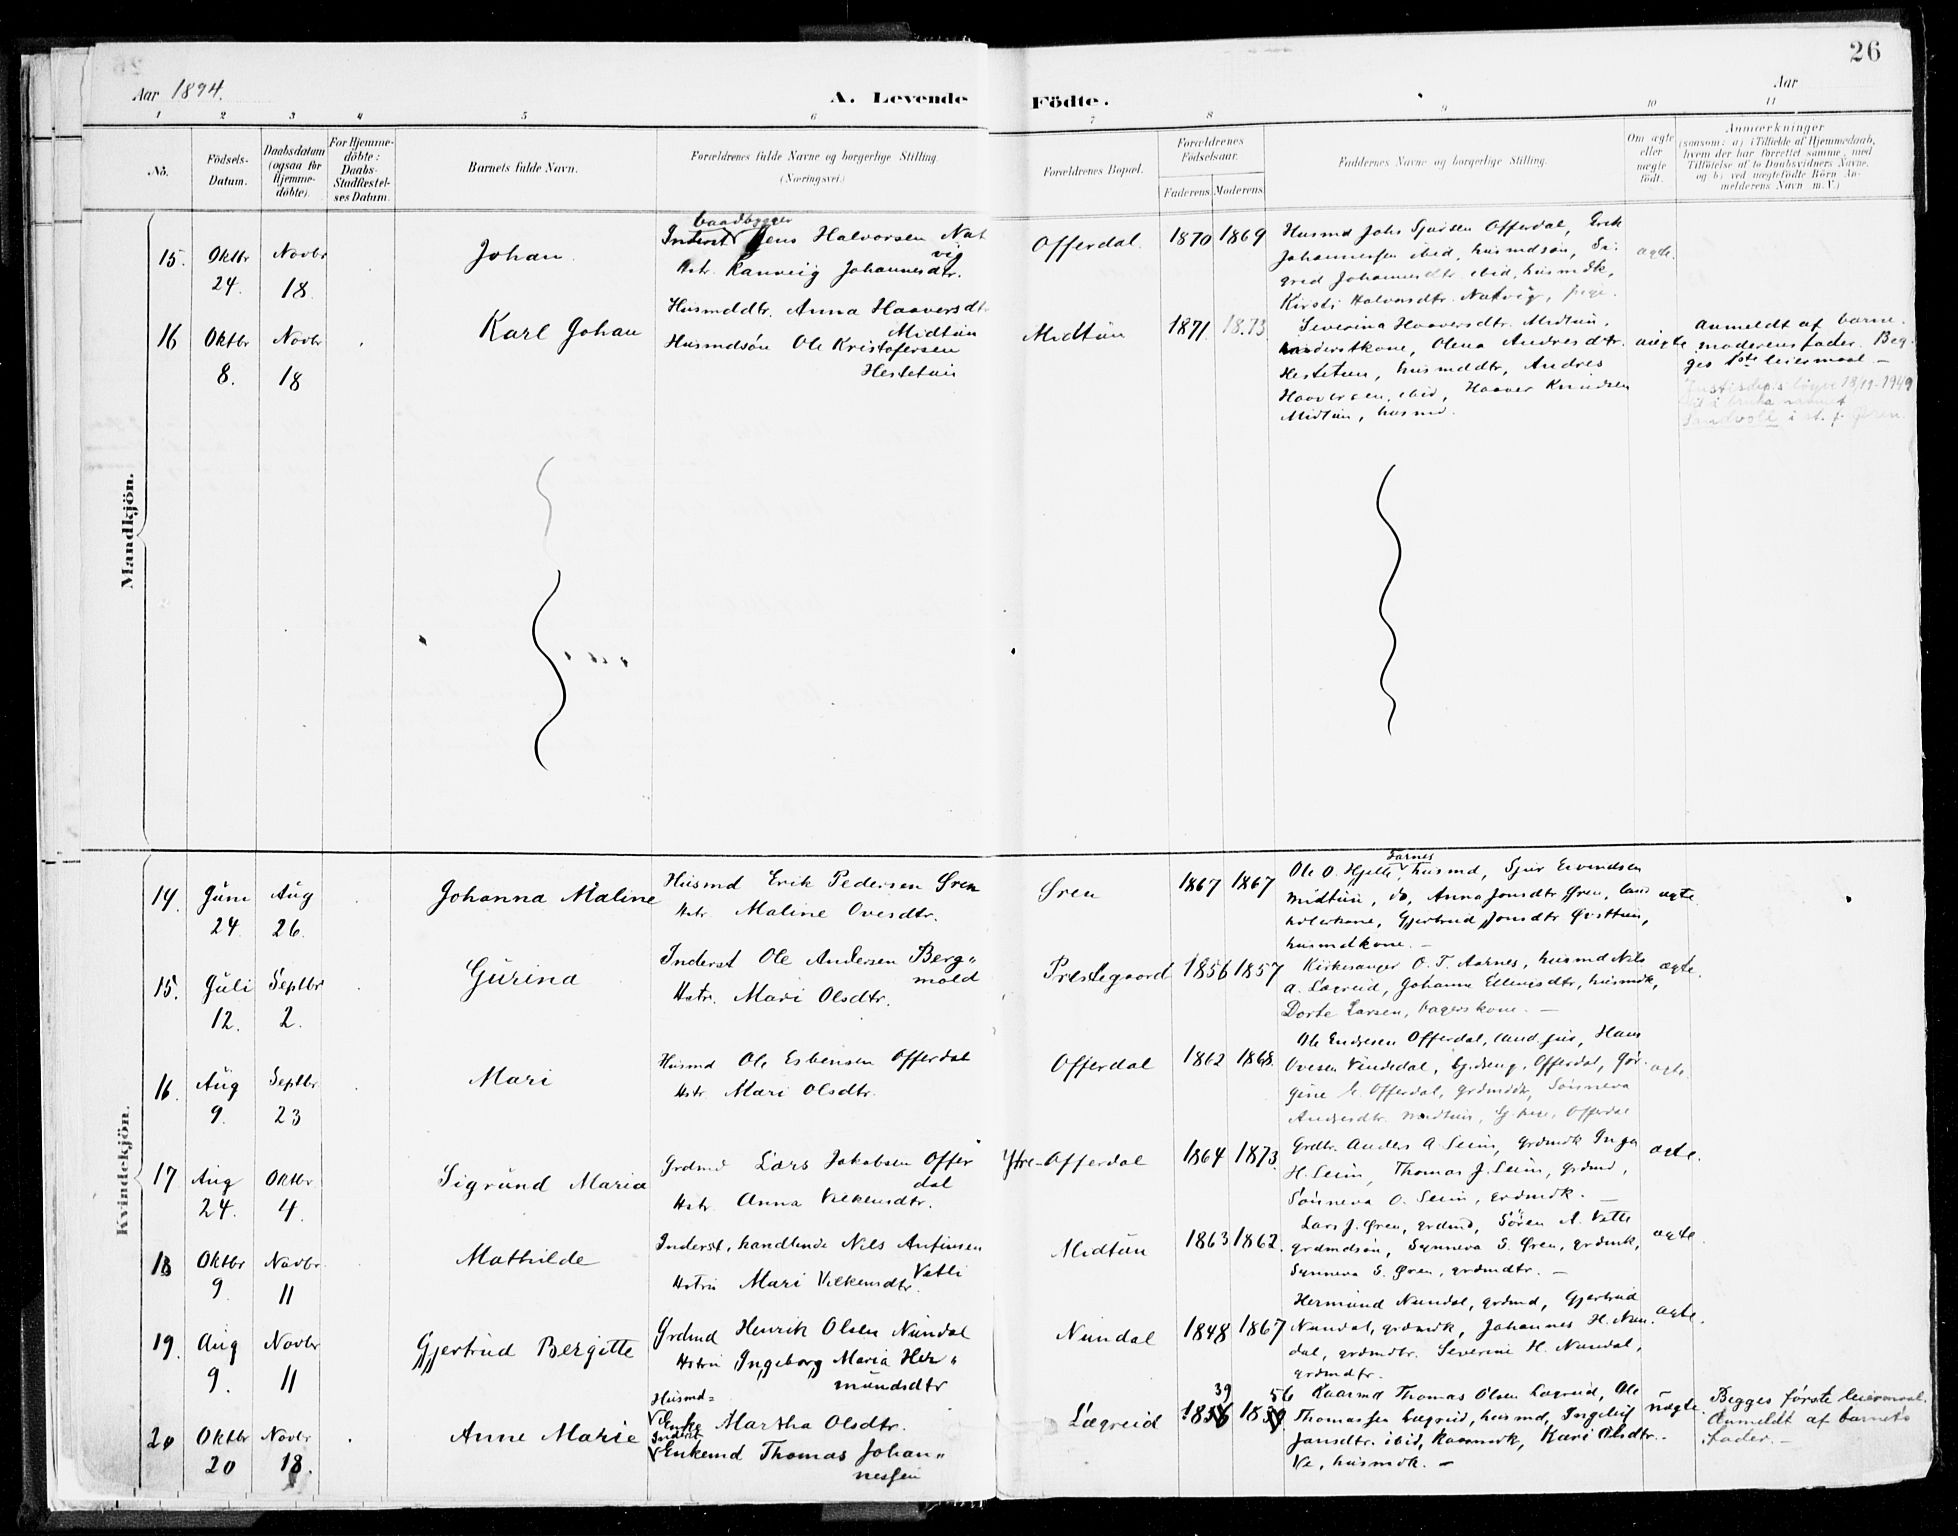 26
Aar 1894.
A. Levende Födte.
Aar
1 2 3 4 5 6 7 8 9 10 11
No.
Födsels-
Datum.
Daabsdatum
(ogsaa för
Hjemme-
döbte).
For Hjemme-
döbte:
Daabs-
Stadfæstel-
ses Datum.
Barnets fulde Navn.
Forældrenes fulde Navne og borgerlige Stilling.
(Næringsvei.)
Forældrenes Bopæl.
Forældrenes
Födselsaar.
Faderens. Moderens.
Faddernes Navne og borgerlige Stilling.
Om ægte
eller
uægte
födt.
Anmærkninger
(saasom: a) i Tilfælde af Hjemmedaab,
hvem der har forrettet samme, med
Tilföielse af to Daabsvidners Navne,
og b) ved uægtefödte Börn An-
melderens Navn m. V.)
Mandkjön.
15.
Oktbr
24.
Novbr
18.
Johan.
baadbygger
Inderst Jens Halvorsen Nat
vig
Hstr. Ranveig Johannesdtr.
Offerdal.
1870 1869
Husmd Johs Sjursen Offerdal, Erik
Johannessen ibid, husmdsøn, Si-
gred Johannesdtr. ibid, husmdk,
Kirsti Halvorsdtr. Natvig, pige.
ægte.
16
Oktbr
8.
Novbr
18
Karl Johan
Husmddtr. Anna Haaversdtr
Midtun
Husmdsøn Ole Kristofersen
Hestetun
Midtun
1871. 1873
Severina Haaversdtr. Midtun,
inderstkone, Olena Andresdtr.
Hestetun, husmddtr, Andres
Haaversen, ibid, Haaver Knudsen
Midtun, husmd.
uægte
anmeldt af barne-
moderens fader. Beg-
ges 1ste leiermaal. —
18/11-1949
i st. f. Øren.
Kvindekjön.
14.
Juni
24.
Aug
26.
Johanna Maline
Husmd Erik Pedersen Øren
Hstr. Maline Ovesdtr.
Øren
1867 1867
Farnes
Ole O. Hjelle, husmd, Sjur Eivindsen
Midtun, do, Anna Jonsdtr Øren, land
holerkone, Gjertrud Jonsdtr Øvsttun,
husmdkone. —
ægte.
15.
Juli
12.
Septbr
2.
Gurina
Inderst Ole Andersen Berg=
mold
Hstr. Mari Olsdtr.
Prestegaard
1856 1857
Kirkesanger O. T. Aarnes, husmd Nils
A. Lægreid, Johanne Ellingsdtr, husmdk,
Dorte Larsen, bagerskone. —
ægte.
16.
Aug
9.
Septbr
23
Mari
Husmd Ole Esbensen Offerdal
Hstr. Mari Olsdtr.
Offerdal
1862 1868.
Ole Endresen Offerdal, Hans
Ovesen Vindedal, Offerdal,
Offerdal, grdmdk, Sønneva
Andresdtr. Midtun, Offerdal
ægte.
17
Aug
24.
Oktbr
4.
Sigrund Maria
Grdmd Lars Jakobsen Offer
dal
Hstr. Anna Vilkensdtr.
Ytre-Offerdal
1864 1873.
Grdtr. Anders A. Seim, grdmdk Inga
H. Seim, Thomas J. Seim, grdmd,
Sønneva O. Seim, grdmdk. —
ægte.
18
Oktbr
9
Novbr
11
Mathilde
Inderst, handlende Nils Anfinsen
Vatli
Hstru Mari Vilkensdtr
Midtun
1863 1862.
Lars J. Øren, grdmd, Søren A. Vatli
grdmdsøn, Synneva S. Øren, grdmdk,
Synneva S. Øren, grdmdtr. —
ægte.
19.
Aug
9.
Novbr
11
Gjertrud Bergitte
Grdmd Henrik Olsen Nundal
Hstru Ingeborg Maria Her=
mundsdtr
Nundal
1848 1867
Hermund Nundal, grdmd, Gjertrud
Nundal, grdmdk, Johannes H. Nun-
dal, grdmdtr. Severine H. Nundal,
grdmdtr.
ægte.
20
Oktbr
20
Novbr
18.
Anne Marie
Husmd=
Enke Martha Olsdtr.
Inderst
Enkemd Thomas Johan=
nessen
Lægreid
39 56
Kaarmd Thomas Olsen Lægreid, Ole
Thomassen Lægreid, husmd, Ingeleif
Jansdtr. ibid, kaarmdk, Kari Olsdtr.
Ve, husmdk. —
uægte.
Begges første leiermaal.
Anmeldt af barnets
fader. —